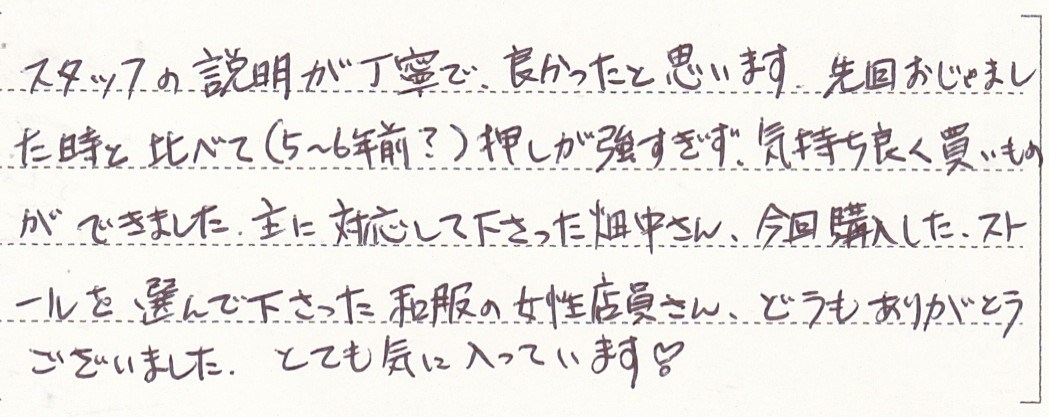 スタッフの説明が丁寧で、良かったと思います。先回おじゃまし
た時と比べて(5〜6年前?)押しが強すぎず、気持ち良く買いもの
ができました。主に対応して下さった畑中さん、今回購入した、スト
ールを選んで下さった和服の女性店員さん、どうもありがとう
ございました。とても気に入っています♡